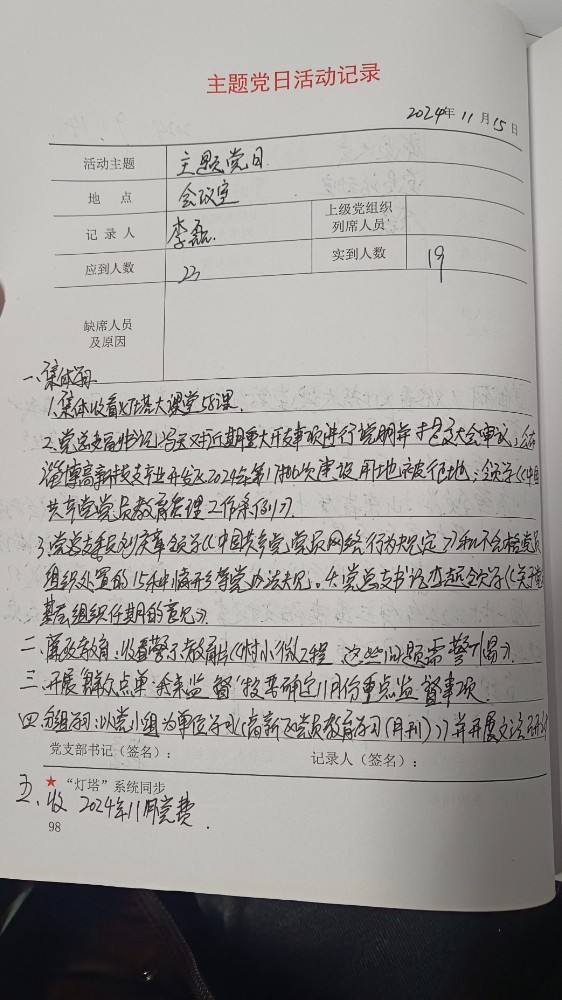 主题党日活动记录
2024年 11月 15日
活动主题 主题党日
地 点 会议室
记 录 人 李磊 上级党组织列席人员
应到人数 23 实到人数 19
缺席人员及原因
一、集体学习
1.集体收看灯塔大课堂58课.
2.党总支副书记 对近期重大开支事项进行说明并提交大会审议;公布
淄博高新技术产业开发区2024年第1 批次建设用地 ;领学《中国
共产党党员教育管理工作条例》.
3.党总支委员 领学《中国共产党党员网络行为规定》和不合格党员
组织处置的15种情形等 办法 。4.党总支书记李超领学《关于党
基层组织任期的意见》.
二、廉政教育:收看警示教育片《村小微工程 这些问题需警惕》.
三、开展"群众点单·我来监督"按要确定11月份重点监督事项
四、分组学习:以党小组为单位学习《高新区党员教育学习(月刊)》并开展交流研讨
党支部书记(签名): 记录人(签名):
★"灯塔"系统同步
五、收 2024年11月党费.
98